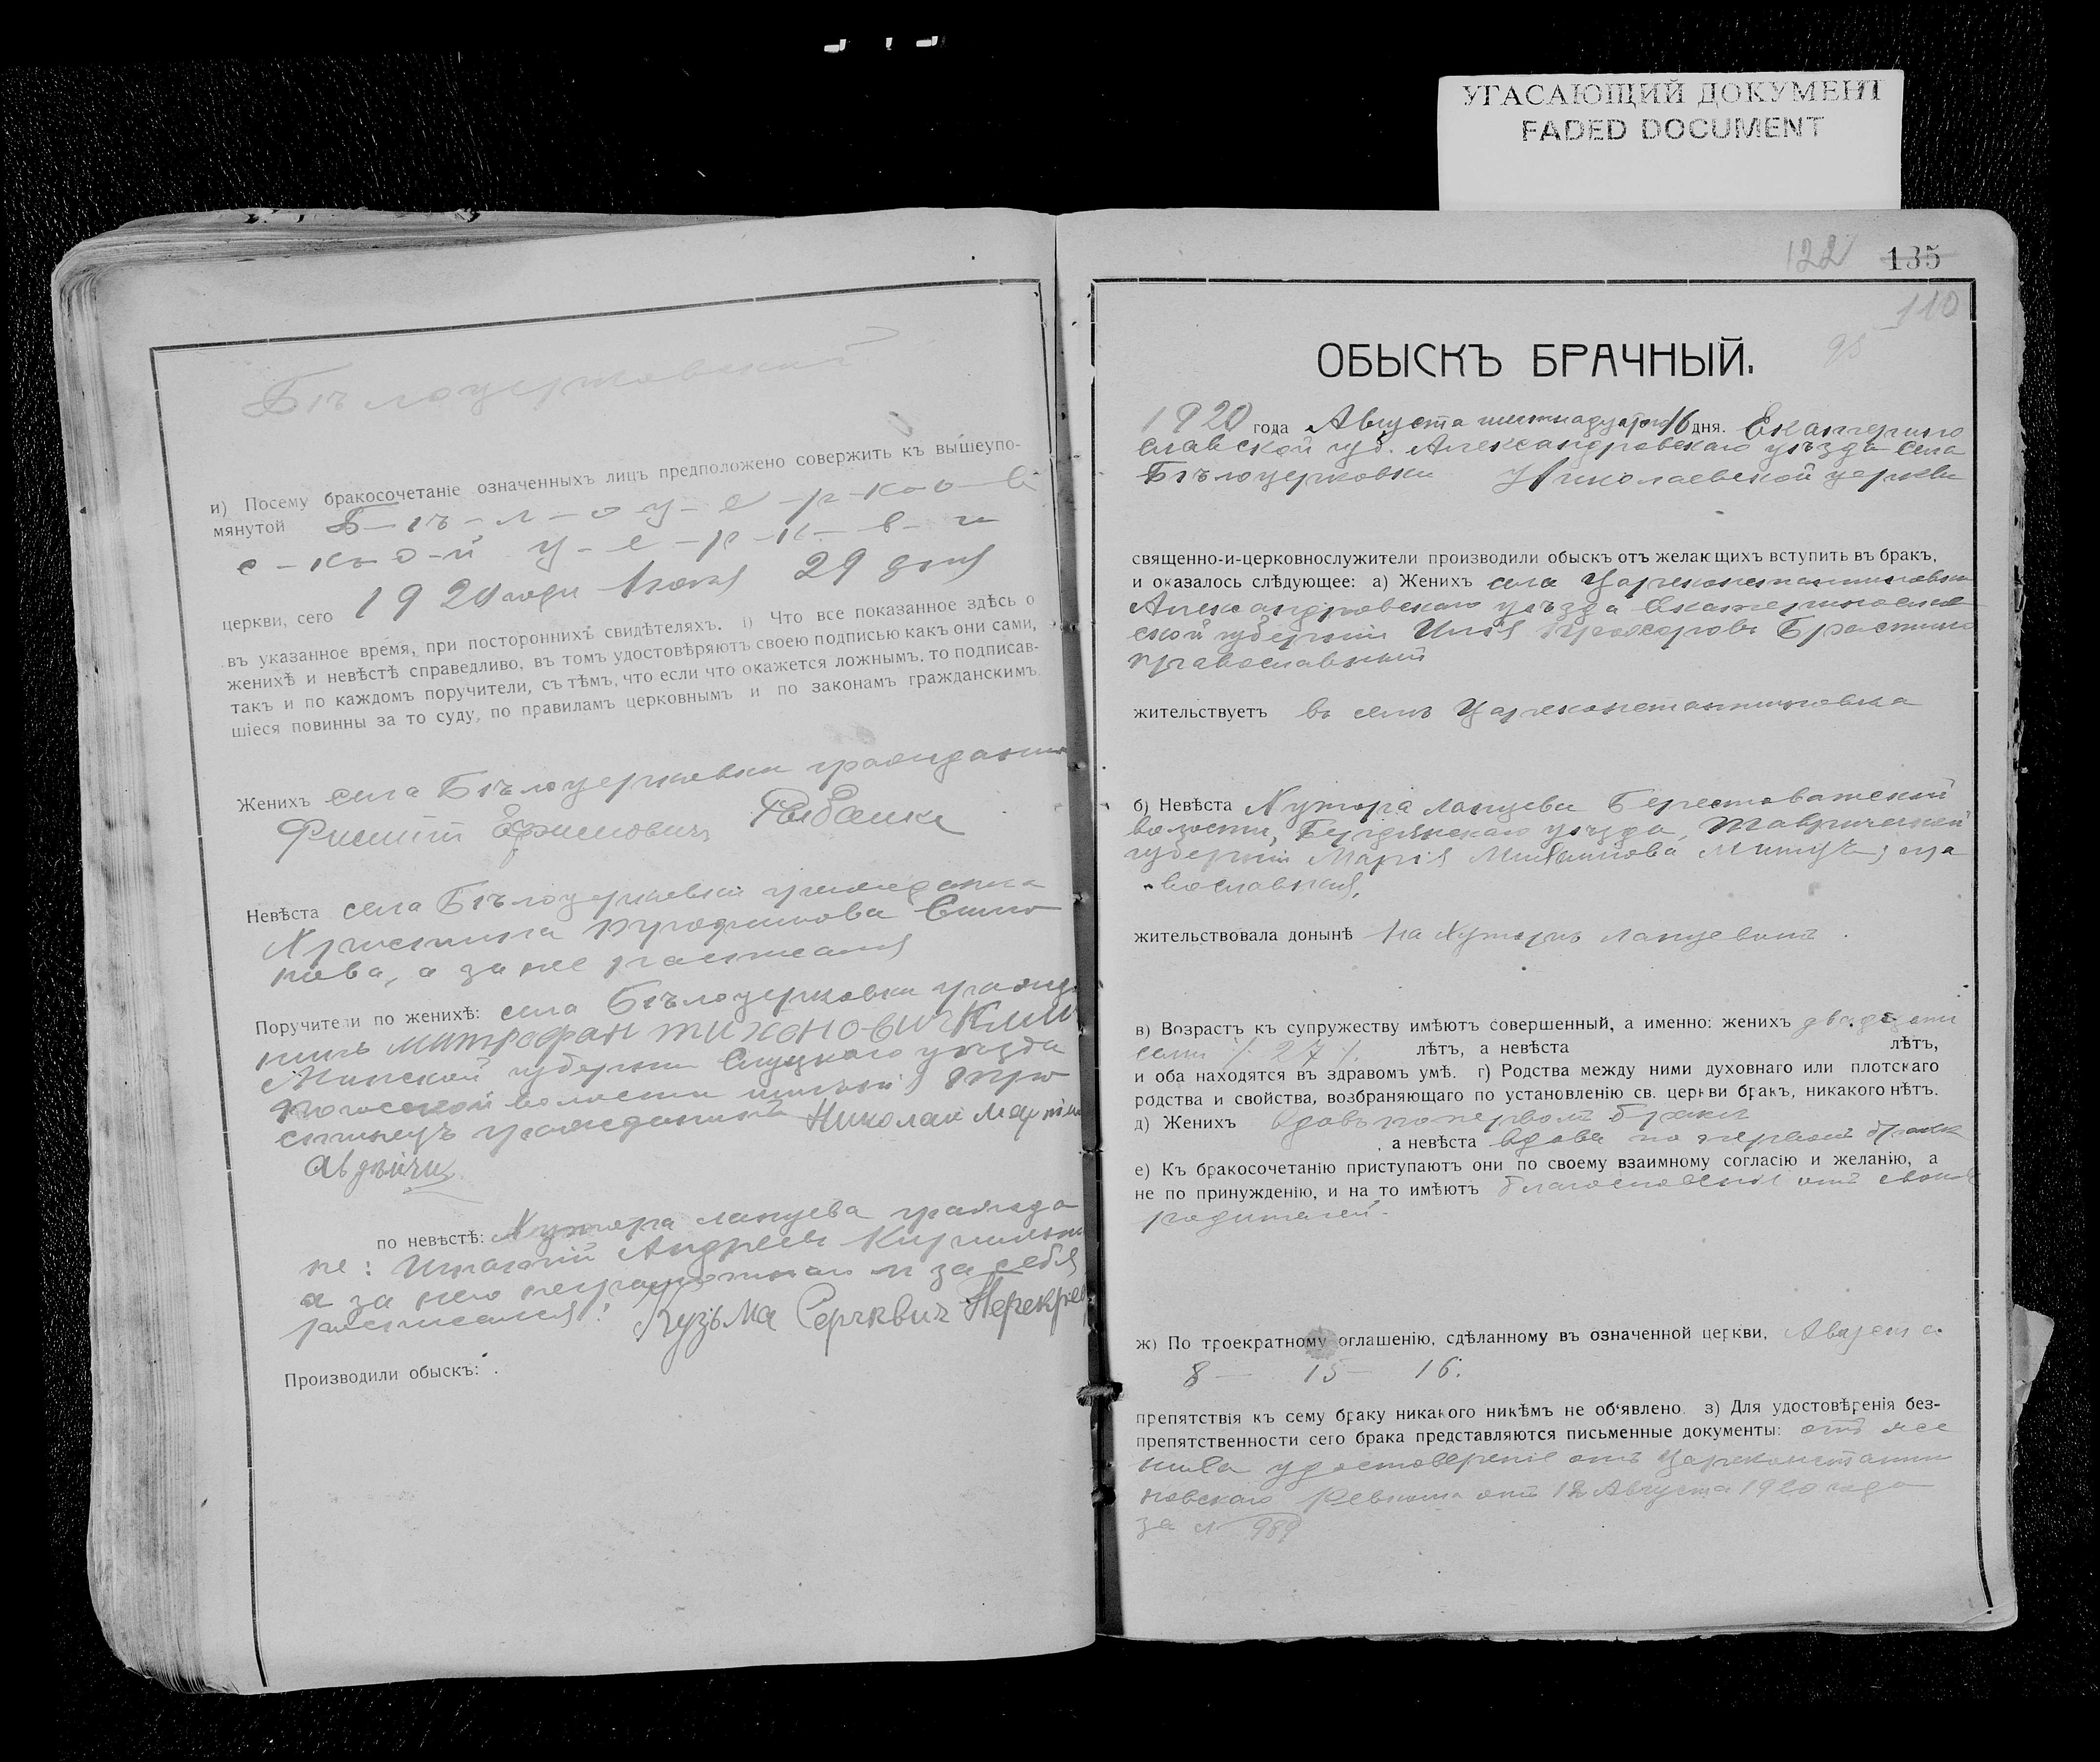 УГАСАЮЩИЙ ДОКУМЕНТ
FADED DOCUMENT
Бѣлоцерковской
и) Посему бракосочетаніе означенныхъ лицъ предположено совержить къ вышеупо-
мянутой Б-ѣ-л-о-ц-е-р-к-о-в
с-к-о-й ц-е-р-к-в-и
церкви, сего 1920 года Іюля 29 дня
въ указанное время, при постороннихъ свидѣтеляхъ. і) Что все показанное здѣсь о
женихѣ и невѣстѣ справедливо, въ томъ удостовѣряютъ своею подписью какъ они сами,
такъ и по каждомъ поручители, съ тѣмъ, что если что окажется ложнымъ, то подписав-
шіеся повинны за то суду, по правиламъ церковнымъ и по законамъ гражданскимъ
Женихъ села Бѣлоцерковки гражданин
Филипп Ефимовичъ
Невѣста села Бѣлоцерковки гражданка
Христина
а за нее расписался
Поручители по женихѣ: села Бѣлоцерковки гражда
нинъ митрофан тихонович Клим
Минской губернии Слуцкого уѣзда
волости
гражданинъ Николай Мартин
Авдѣичи
по невѣстѣ: Хутора Ланцева гражда
не: Игнатій Андреевъ
а за него неграмотнаго и за себя
расписался: Кузьма Перекрес
Производили обыскъ:
122 135
110
95
ОБЫСКЪ БРАЧНЫЙ.
1920 года Августа шестнадцатаго 16 дня. Екатерино
славской губ. Александровскаго уѣзда села
Бѣлоцерковки Николаевской церкви
священно-и-церковнослужители производили обыскъ отъ желающихъ вступить въ бракъ,
и оказалось слѣдующее: а) Женихъ села Цареконстантиновки
Александровскаго уѣзда Екатеринослав
ской губерніи Илія Прохоровъ
православный
жительствуетъ въ селѣ Цареконстантиновка
б) Невѣста Хутора Ланцева Берестоватской
волости, Бердянскаго уѣзда, Таврической
губерніи Марія Михаилова пра
вославная,
жительствовала донынѣ На Хуторѣ Ланцевомъ.
в) Возрастъ къ супружеству имѣютъ совершенный, а именно: женихъ двадцати
семи /. 27 /. лѣтъ, а невѣста лѣтъ,
и оба находятся въ здравомъ умѣ. г) Родства между ними духовнаго или плотскаго
родства и свойства, возбраняющаго по установленію св. церкви бракъ, никакого нѣтъ.
д) Женихъ вдовъ по первомъ бракѣ
, а невѣста вдова по первомъ бракѣ
е) Къ бракосочетанію приступаютъ они по своему взаимному согласію и желанію, а
не по принужденію, и на то имѣютъ благословеніе отъ своихъ
родителей.
ж) По троекратному оглашенію, сдѣланному въ означенной церкви, Августа
8 — 15 — 16.
препятствія къ сему браку никакого никѣмъ не об‘явлено. з) Для удостовѣренія без-
препятственности сего брака представляются письменные документы: отъ же
ниха удостоверение отъ Цареконстанти
новскаго Ревкома отъ 12 Августа 1920 года
за № 989